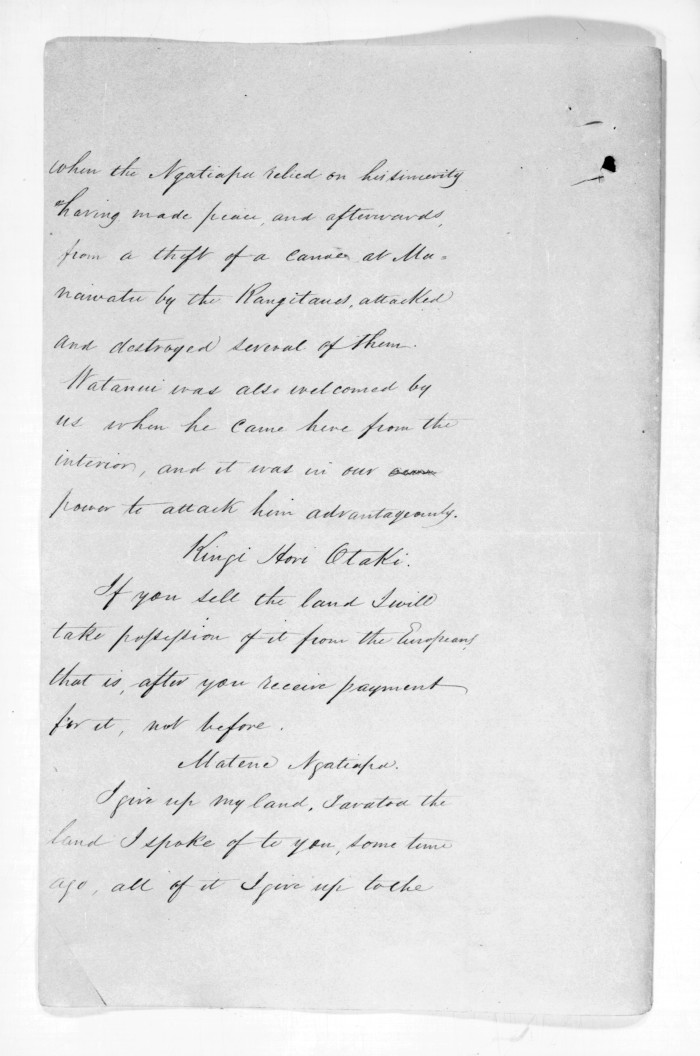 when the Ngatiapa relied on his sincerity
having made peace, and afterwards,
from a theft of a canoe at Ma=
nawatu by the Rangitanes, attacked
and destroyed several of them.
Watanui was also welcomed by
us when he came here from the
interior, and it was in our
power to attack him advantageously.
Kingi Hori Otaki.
If you sell the land I will
take possession of it from the Europeans,
that is, after you receive payment
for it, not before.
Matene Ngatiapa.
I give up my land, the
land I spoke of to you, some time
ago, all of it I give up to the